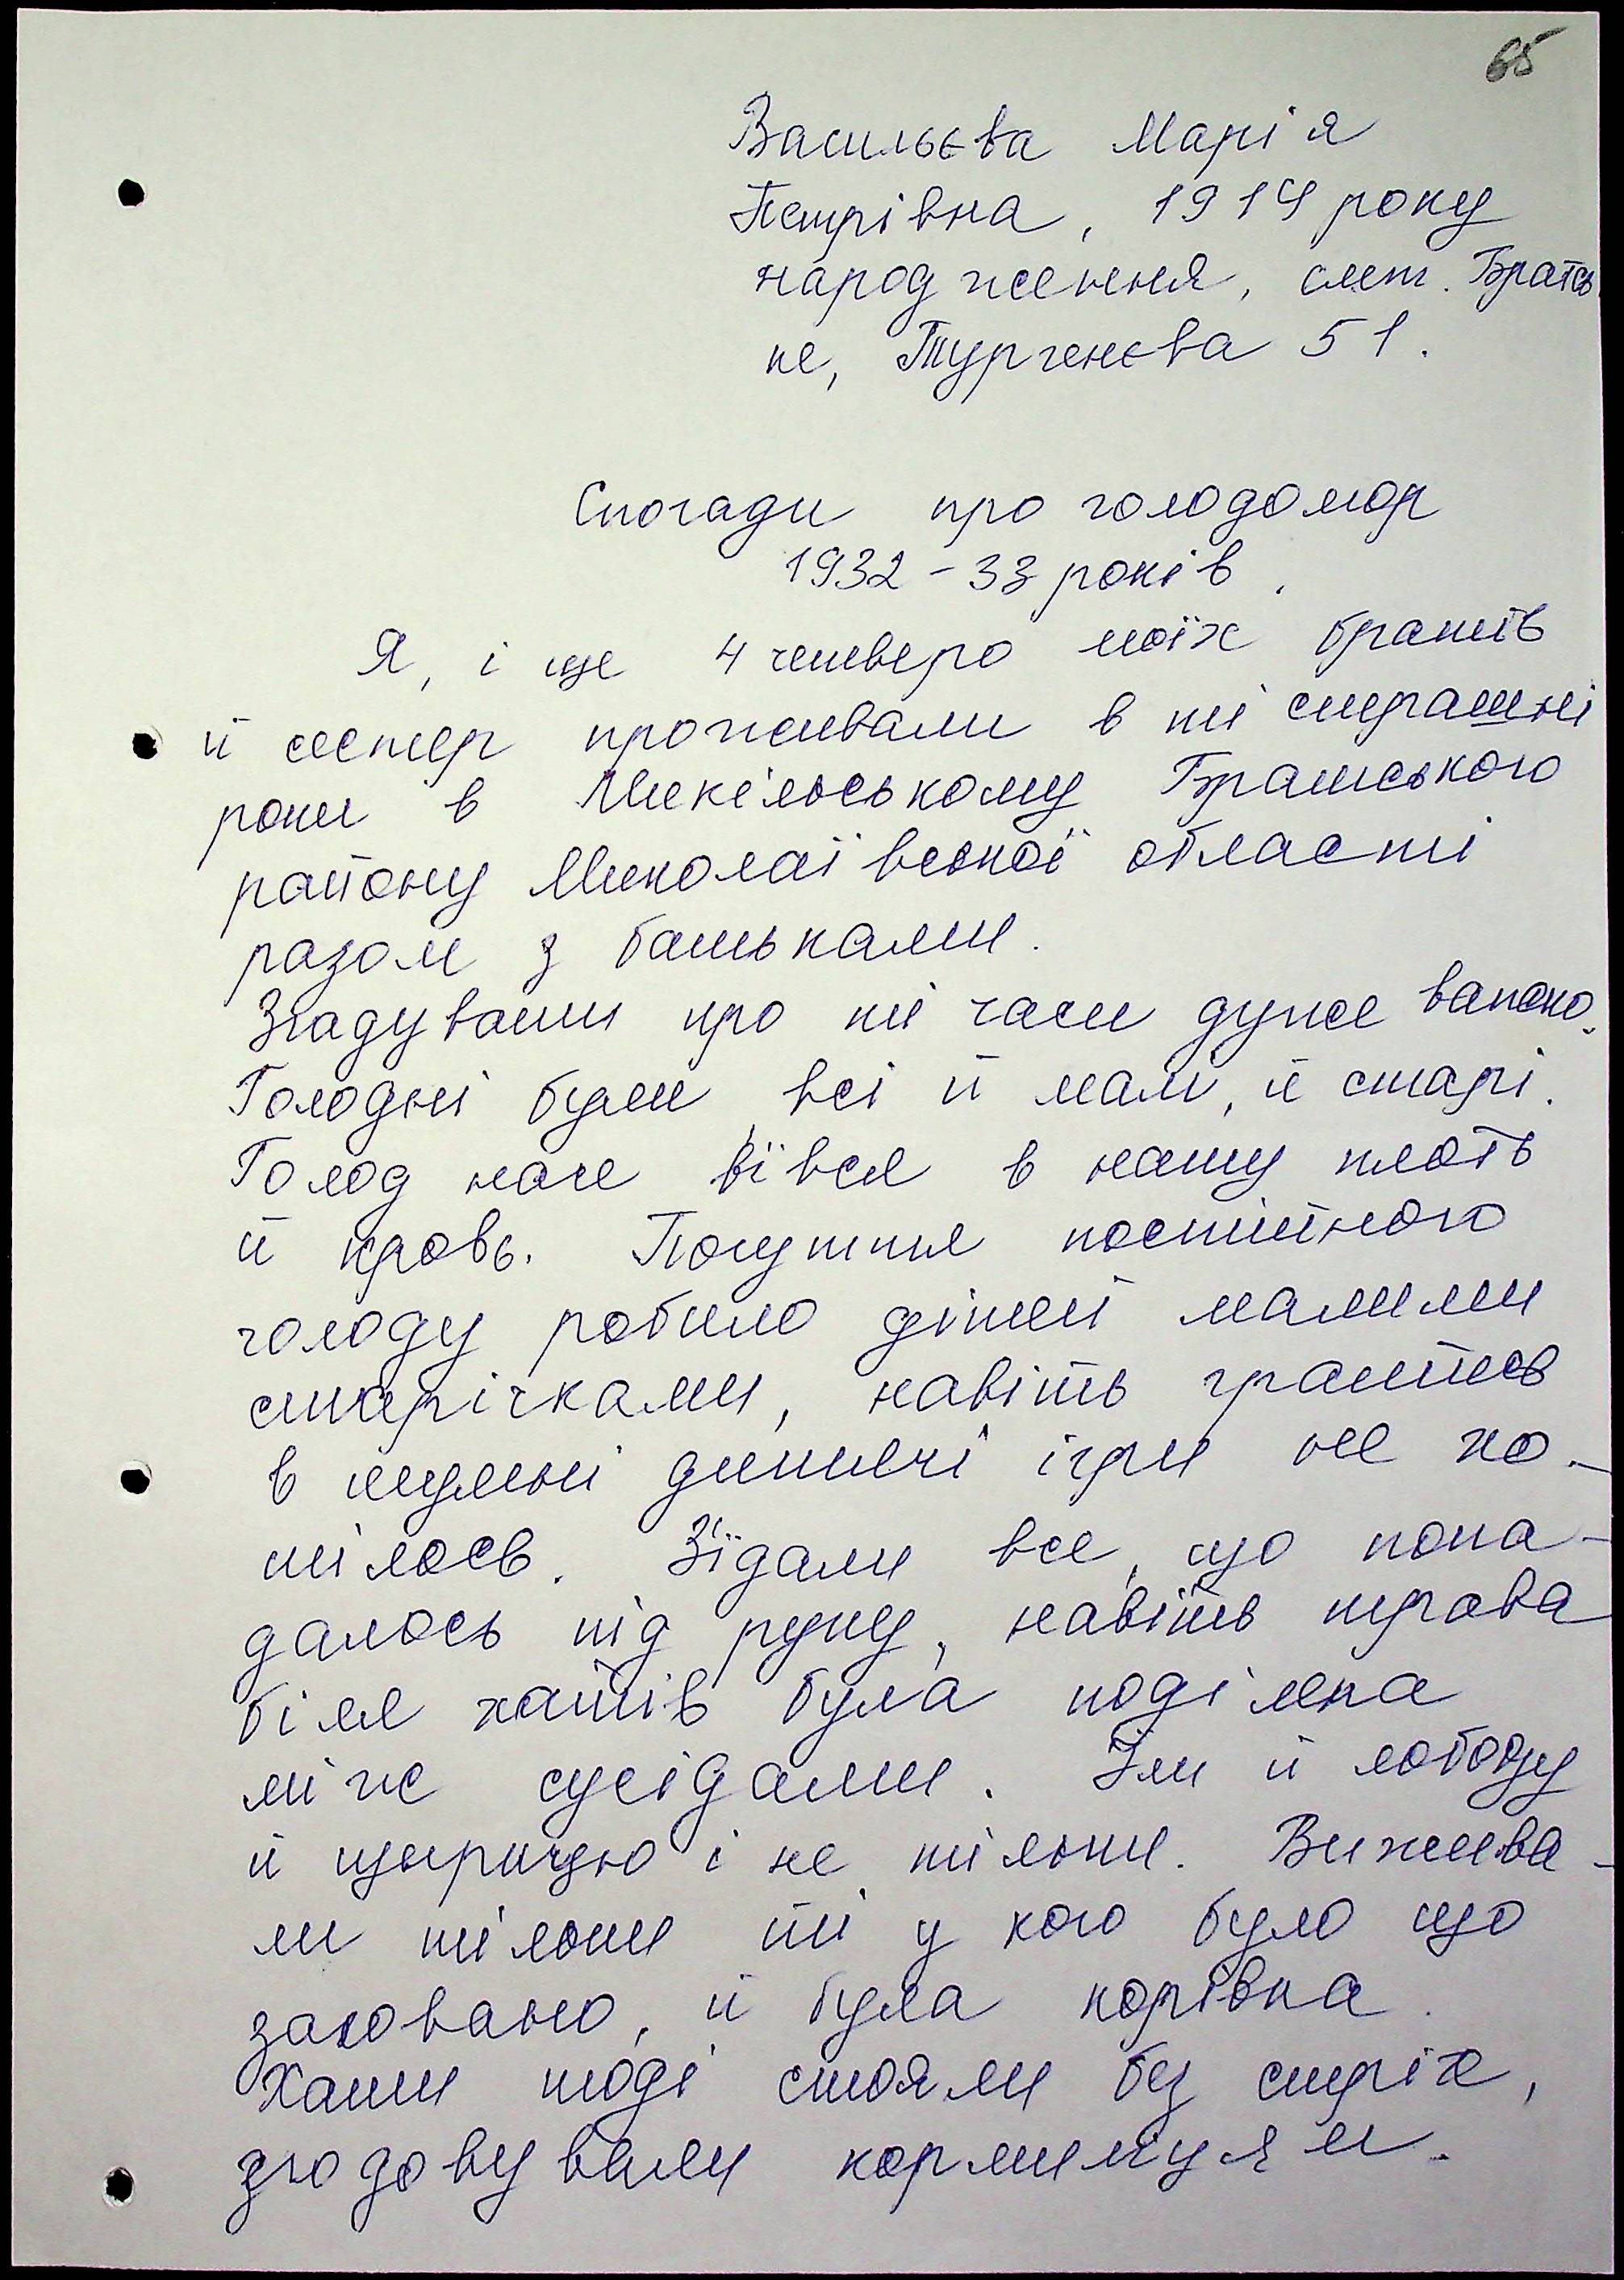 65
Васильєва Марія
Петрівна, 1914 року
народження, смт. Братсь
ке, Тургенєва 51.
Спогади про голодомор
1932-33 років.
Я, і ще 4 четверо моїх братів
й сестер проживали в ті страшні
роки в Микільському Братського
району Миколаївської області
разом з батьками.
Згадувати про ті часи дуже важко.
Голодні були всі й малі, й старі.
Голод наче в'ївся в нашу плоть
й кровь. Почуття постійного
голоду робило дітей малими
старічками, навіть гратись
в шумні дитячі ігри не хо-
тілось. З'їдали все, що попа-
далось під руку, навіть трава
біля хатів була поділена
між сусідами. Їли й лободу
й щирицю і не тільки. Вижива-
ли тільки ті у кого було що
заховано, й була корівка.
Хати тоді стояли без стріх,
згодовували корми